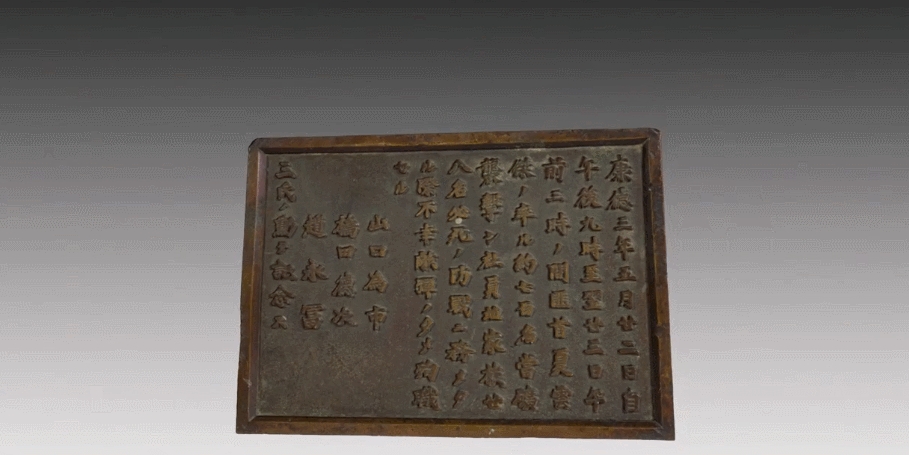 康德三年五月廿二日自
午後九時至翌廿三日午
前三時ノ間匪首夏雲
傑ノ率ル約七百名當礦
襲撃シ社員並家族廿
八名必死ノ防戰ニ務メタ
ル際不幸敵彈ノタメ殉職
セル
山口為市
橋口慶次
趙永富
三氏ノ勳ヲ記念ス